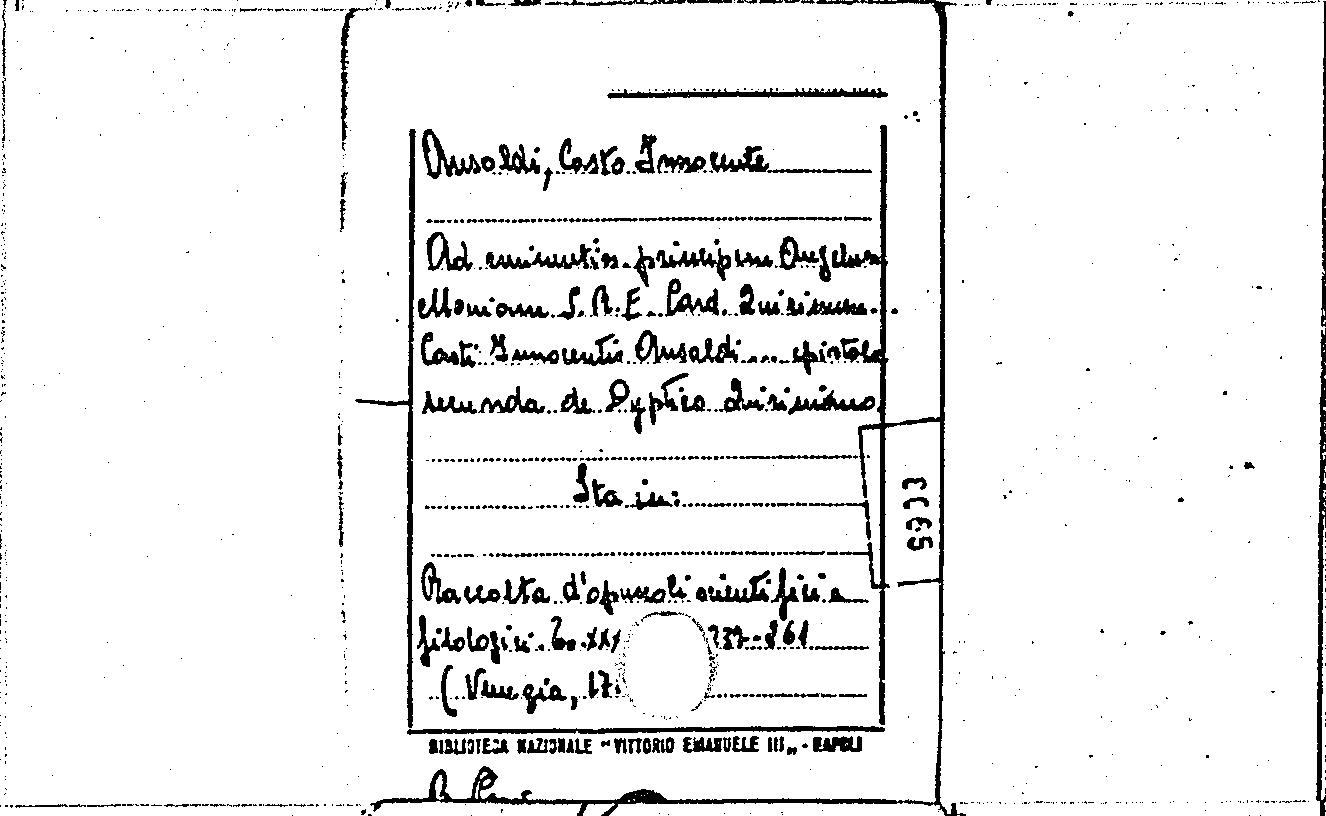 Ansoldi, Casto Innocente
Ad eminentis. principem Angelum
Mariam S.R.E. Card. Quirinum.
Casti Innocentis Ansaldi.... epistola
secunda de Dyptico Quiriniano
Sta in:
Raccolta d'opuscoli scientifici e
filologici. To. XXX 237-261
(Venezia, 17
BIBLIOTECA NAZIONALE "VITTORIO EMANUELE III„ - NAPOLI